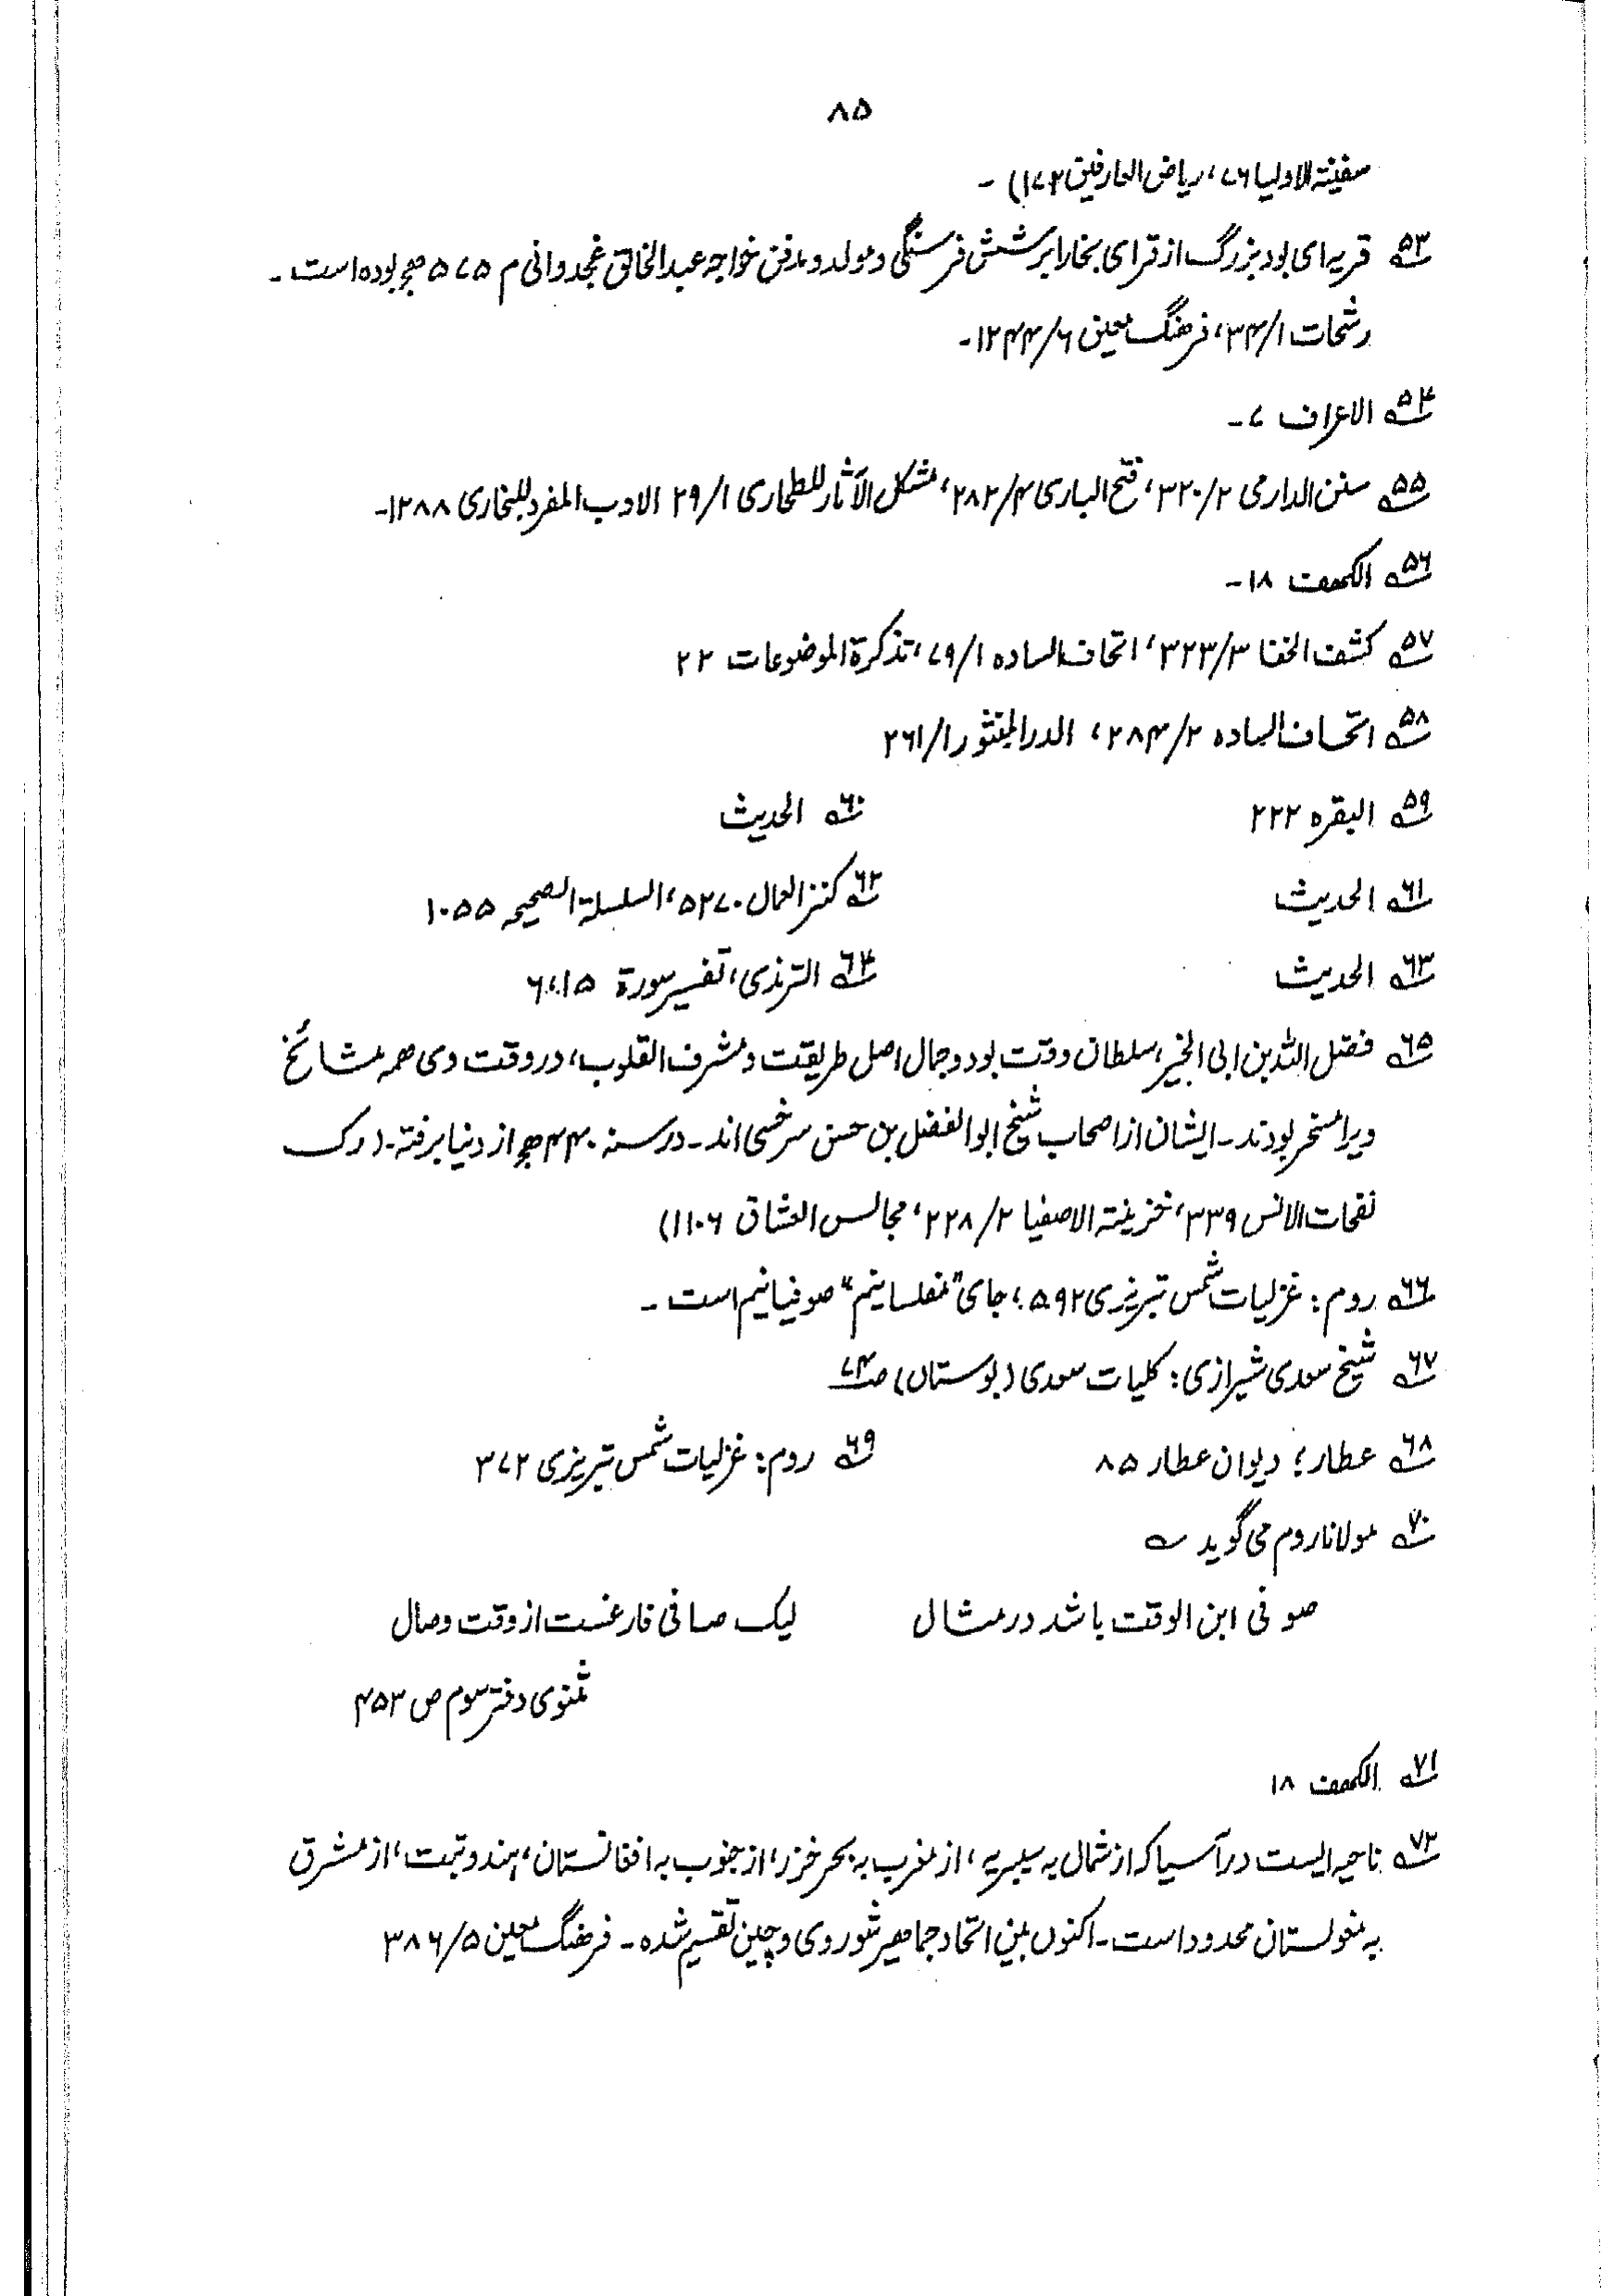 ۸۵
سفینۃ الاولیا ۷۶، ریاض العارفین ۱۷۲) ۔
۵۳ قریہ ای بود بزرگ از قرای بخارا بر شش فرسنگی و مولد و مدفن خواجہ عبدالخالق غجدوانی م ۵۷۵ ھجر بودہ است ۔
رشحات ۳۴/۱، فرھنگ معین ۱۲۴۴/۶۔
۵۴ الاعراف ۷۔
۵۵ سنن الدارمی ۳۲۰/۲، فتح الباری ۲۸۲/۴، مشکل الآثار للطحاری ۲۹/۱ الادب المفرد للبخاری ۱۲۸۸۔
۵۶ الکھف ۱۸۔
۵۷ کشف الخفا ۳۲۳/۳، اتحاف السادہ ۷۹/۱، تذکرۃ الموضوعات ۲۲
۵۸ اتحاف السادہ ۲۸۴/۲، الدر المنثور ۲۶۱/۱
۵۹ البقرہ ۲۲۲ ۶۰ الحدیث
۶۱ الحدیث ۶۲ کنز العمال ۵۲۷۰، السلسلۃ الصحیحہ ۱۰۵۵
۶۳ الحدیث ۶۴ الترمذی، تفسیر سورۃ ۱۵،
۶۵ فضل اللہ بن ابی الخیر، سلطان وقت بود و جمال اھل طریقت و مشرف القلوب، در وقت وی ھمہ مشائخ
ویرا مسخر بودند ۔ ایشان از اصحاب شیخ ابوالفضل بن حسن سرخسی اند ۔ در سنہ ۴۴۰ ھجر از دنیا برفتہ ۔ (رک
نفحات الانس ۳۳۹، خزینۃ الاصفیا ۲۲۸/۲، مجالس العشاق ۱۱۰۶)
۶۶ روم: غزلیات شمس تبریزی ۵۹۲، جای ”مفلسانیم“ صوفیانیم است ۔
۶۷ شیخ سعدی شیرازی: کلیات سعدی (بوستاں) ص ۷۴
۶۸ عطار؛ دیوان عطار ۸۵ ۶۹ روم: غزلیات شمس تبریزی ۳۷۲
۷۰ مولانا روم می گوید ؎
صوفی ابن الوقت باشد در مثال لیک صافی فارغست از وقت و حال
مثنوی دفتر سوم ص ۴۵۳
۷۱ الکھف ۱۸
۷۲ ناحیہ ایست در آسیا کہ از شمال بہ سیبریہ، از مغرب بہ بحر خزر، از جنوب بہ افغانستان، ہند و تبت، از مشرق
بہ مغولستان محدود است ۔ اکنوں بین اتحاد جماھیر شوروی و چین تقسیم شدہ ۔ فرھنگ معین ۳۸۶/۵